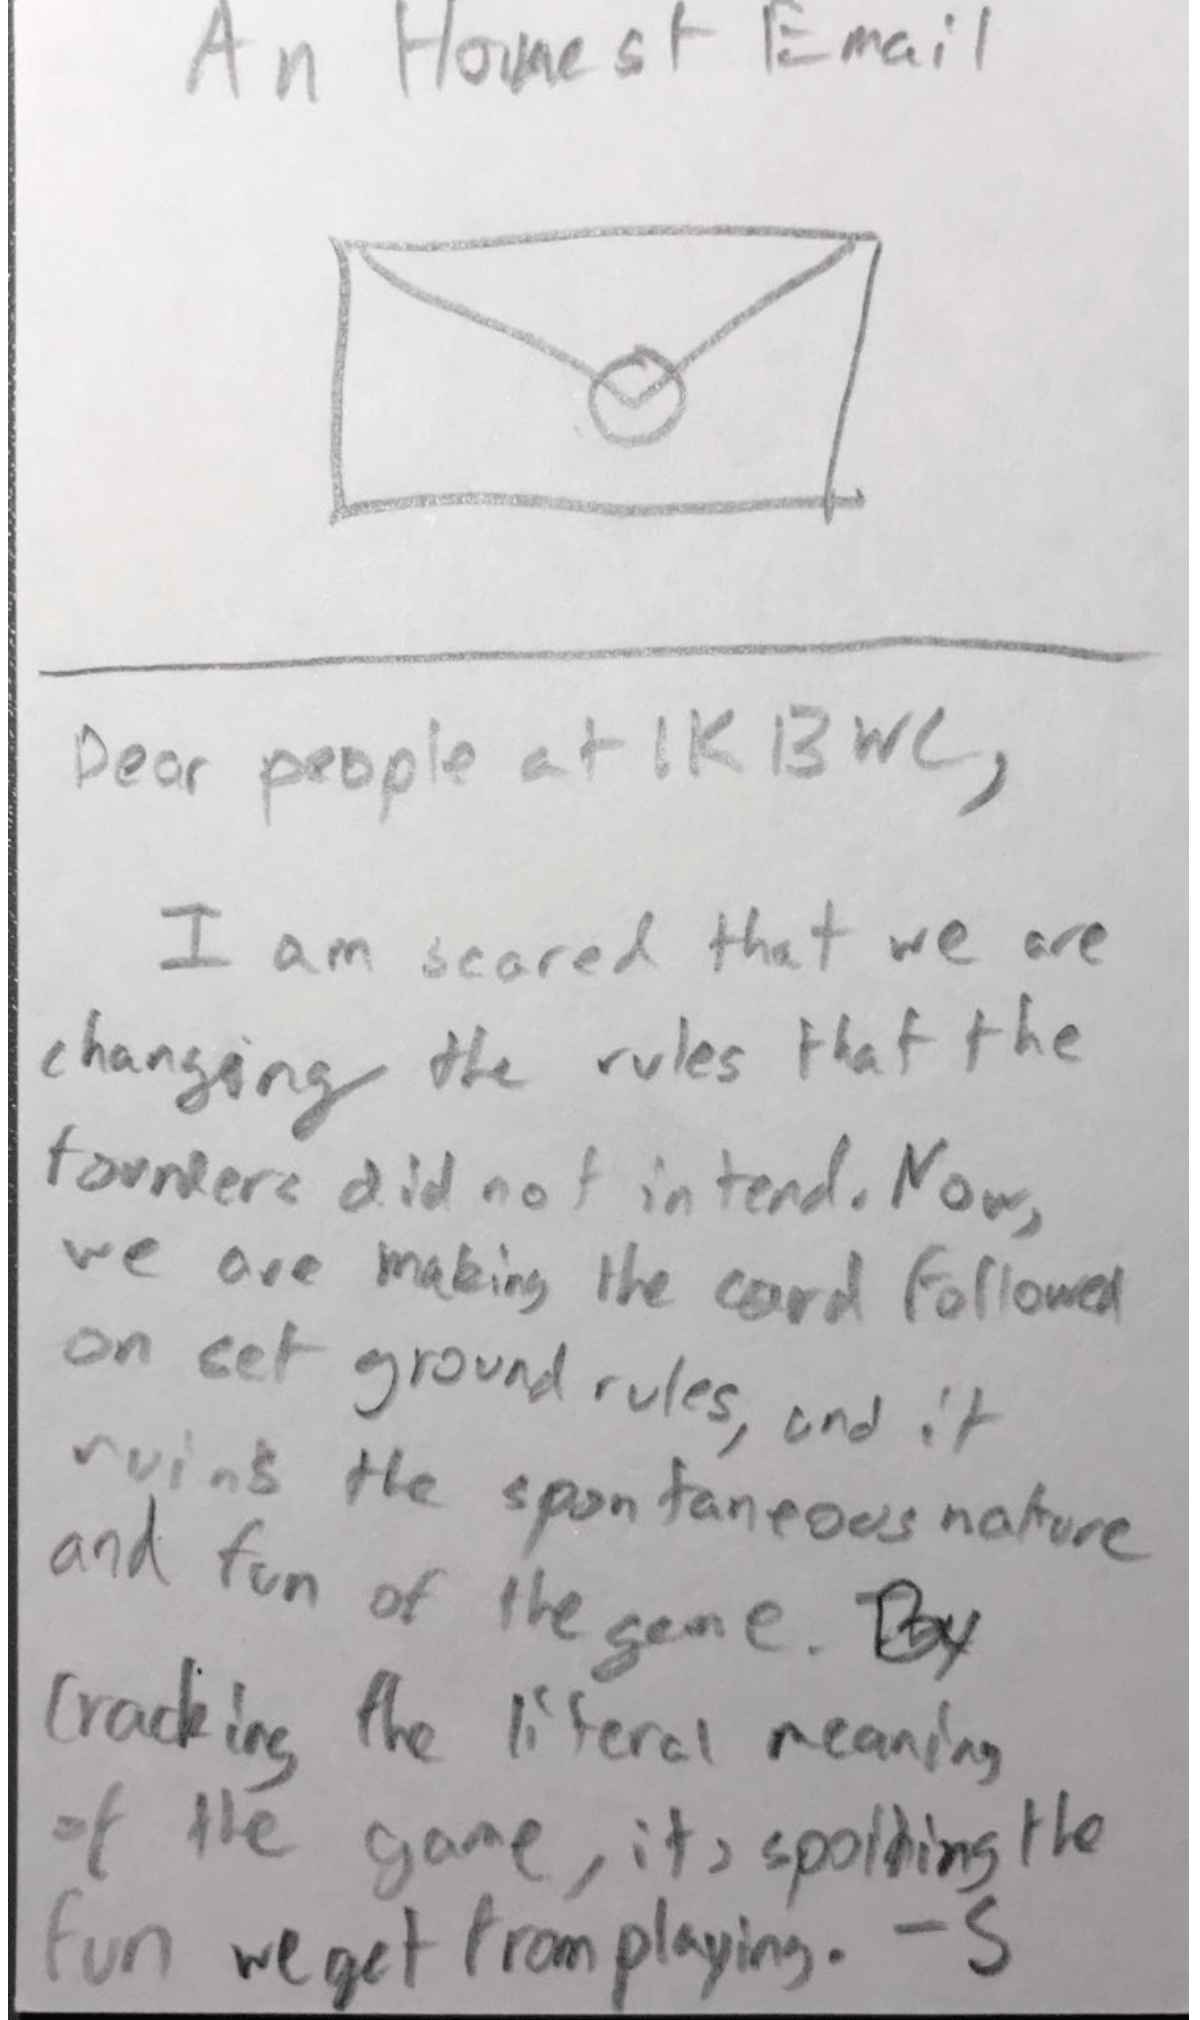 An Honest Email
Dear people at 1KBWC,
I am scared that we are
changing the rules that the
founders did not intend. Now,
we are making the card followed
on set ground rules, and it
ruins the spontaneous nature
and fun of the game. By
cracking the literal meaning
of the game, its spoiling the
fun we get from playing. -S